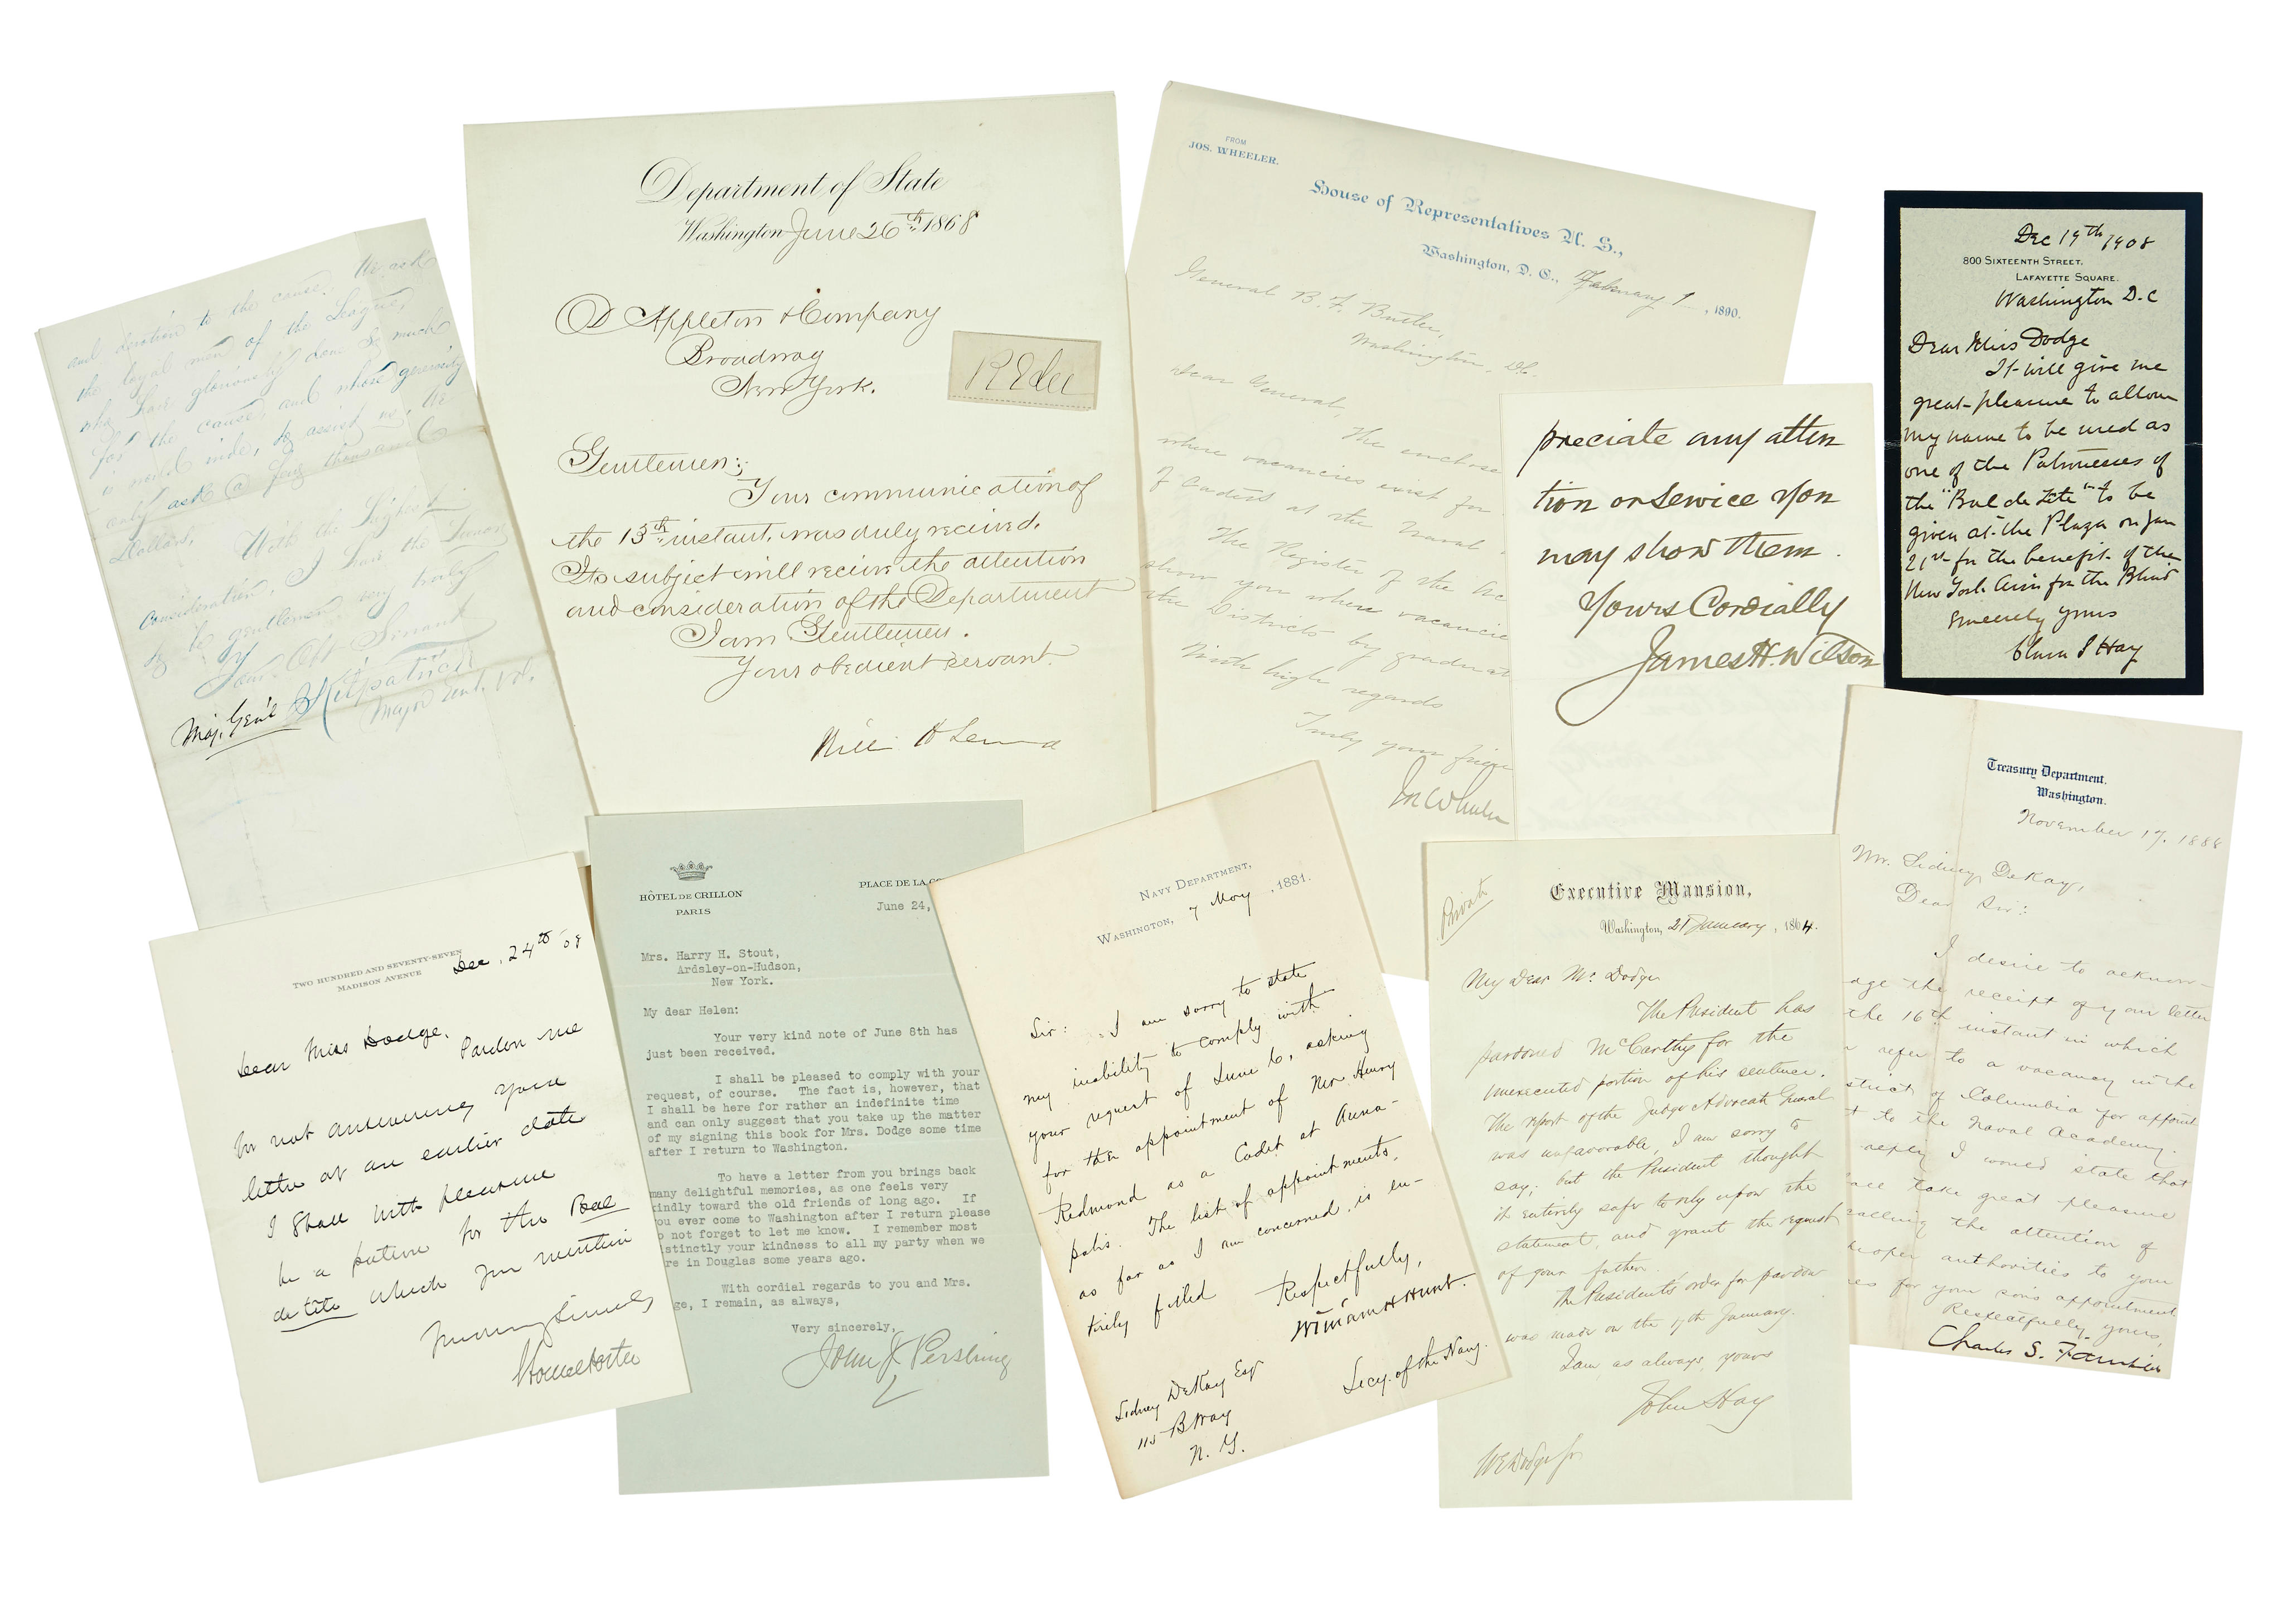 and devotion to the cause. We ask
the loyal men of the League,
who have gloriously done so much
for the cause, and whose generosity
is world wide, to assist us, We
only ask a few thousand
Dollars,
With the highest
consideration, I have the honor
to be gentlemen very truly
Your Obt Servant
Maj. Gen'l Kilpatrick
Major Genl. Vol.
Department of State
Washington June 26th 1868
D Appleton & Company
Broadway
New York.
R E Lee
Gentlemen:
Your communication of
the 13th instant, was duly received.
Its subject will receive the attention
and consideration of the Department
I am Gentlemen.
Your obedient servant.
FROM
JOS. WHEELER.
House of Representatives U. S.,
Washington, D. C., February 1, 1890.
General B. F. Butler,
Washington, DC.
Dear General,
The enclose
where vacancies exist for
of Cadets at the Naval
The Register of the Ac
show you where vacancie
the Districts by graduat
With high regards
Truly your frien
Jos Wheeler
preciate any atten
tion or service you
may show them.
Yours Cordially
James H. Wilson
Dec 19th 1908
800 SIXTEENTH STREET.
LAFAYETTE SQUARE.
Washington D.C
Dear Miss Dodge
It will give me
great pleasure to allow
my name to be used as
one of the Patronesses of
the "Bal de Tête" to be
given at the Plaza on Jan
21st for the benefit of the
New York Assn for the Blind
Sincerely yours
Clara S Hay
TWO HUNDRED AND SEVENTY-SEVEN
MADISON AVENUE
Dec. 24th '08
Dear Miss Dodge.
Pardon me
for not answering your
letter at an earlier date
I shall with pleasure
be a patron for the Bal
de tête which you mention
Yours very sincerely
Horace Porter
HÔTEL DE CRILLON
PARIS
PLACE DE LA CO
June 24,
Mrs. Harry H. Stout,
Ardsley-on-Hudson,
New York.
My dear Helen:
Your very kind note of June 8th has
just been received.
I shall be pleased to comply with your
request, of course. The fact is, however, that
I shall be here for rather an indefinite time
and can only suggest that you take up the matter
of my signing this book for Mrs. Dodge some time
after I return to Washington.
To have a letter from you brings back
many delightful memories, as one feels very
kindly toward the old friends of long ago. If
ou ever come to Washington after I return please
o not forget to let me know. I remember most
istinctly your kindness to all my party when we
re in Douglas some years ago.
With cordial regards to you and Mrs.
ge, I remain, as always,
Very sincerely,
John J. Pershing
NAVY DEPARTMENT,
WASHINGTON, 7 May, 1881.
Sir: I am sorry to state
my inability to comply with
your request of June 6, asking
for the appointment of Mr Henry
Redmond as a Cadet at Anna-
polis. The list of appointments,
as far as I am concerned, is en-
tirely filled
Respectfully,
William H Hunt.
Secy. of the Navy.
Sidney DeKay Esq
115 B'way
N. Y.
Private
Executive Mansion,
Washington, 21 January, 1864.
My Dear Mr. Dodge
The President has
pardoned McCarthy for the
unexecuted portion of his sentence.
The report of the Judge Advocate General
was unfavorable, I am sorry to
say; but the President thought
it entirely safe to rely upon the
statement, and grant the request
of your father.
The President's order for pardon
was made on the 19th January.
I am, as always, yours
John Hay
W E Dodge Jr
Treasury Department.
Washington.
November 17, 1888
Mr. Sidney DeKay,
Dear Sir:
I desire to acknow-
dge the receipt of your letter
the 16th instant in which
refer to a vacancy in the
strict of Columbia for appoint
t to the Naval Academy.
reply I would state that
all take great pleasure
calling the attention of
roper authorities to your
es for your son's appointment
Respectfully yours,
Charles S. Fairchild